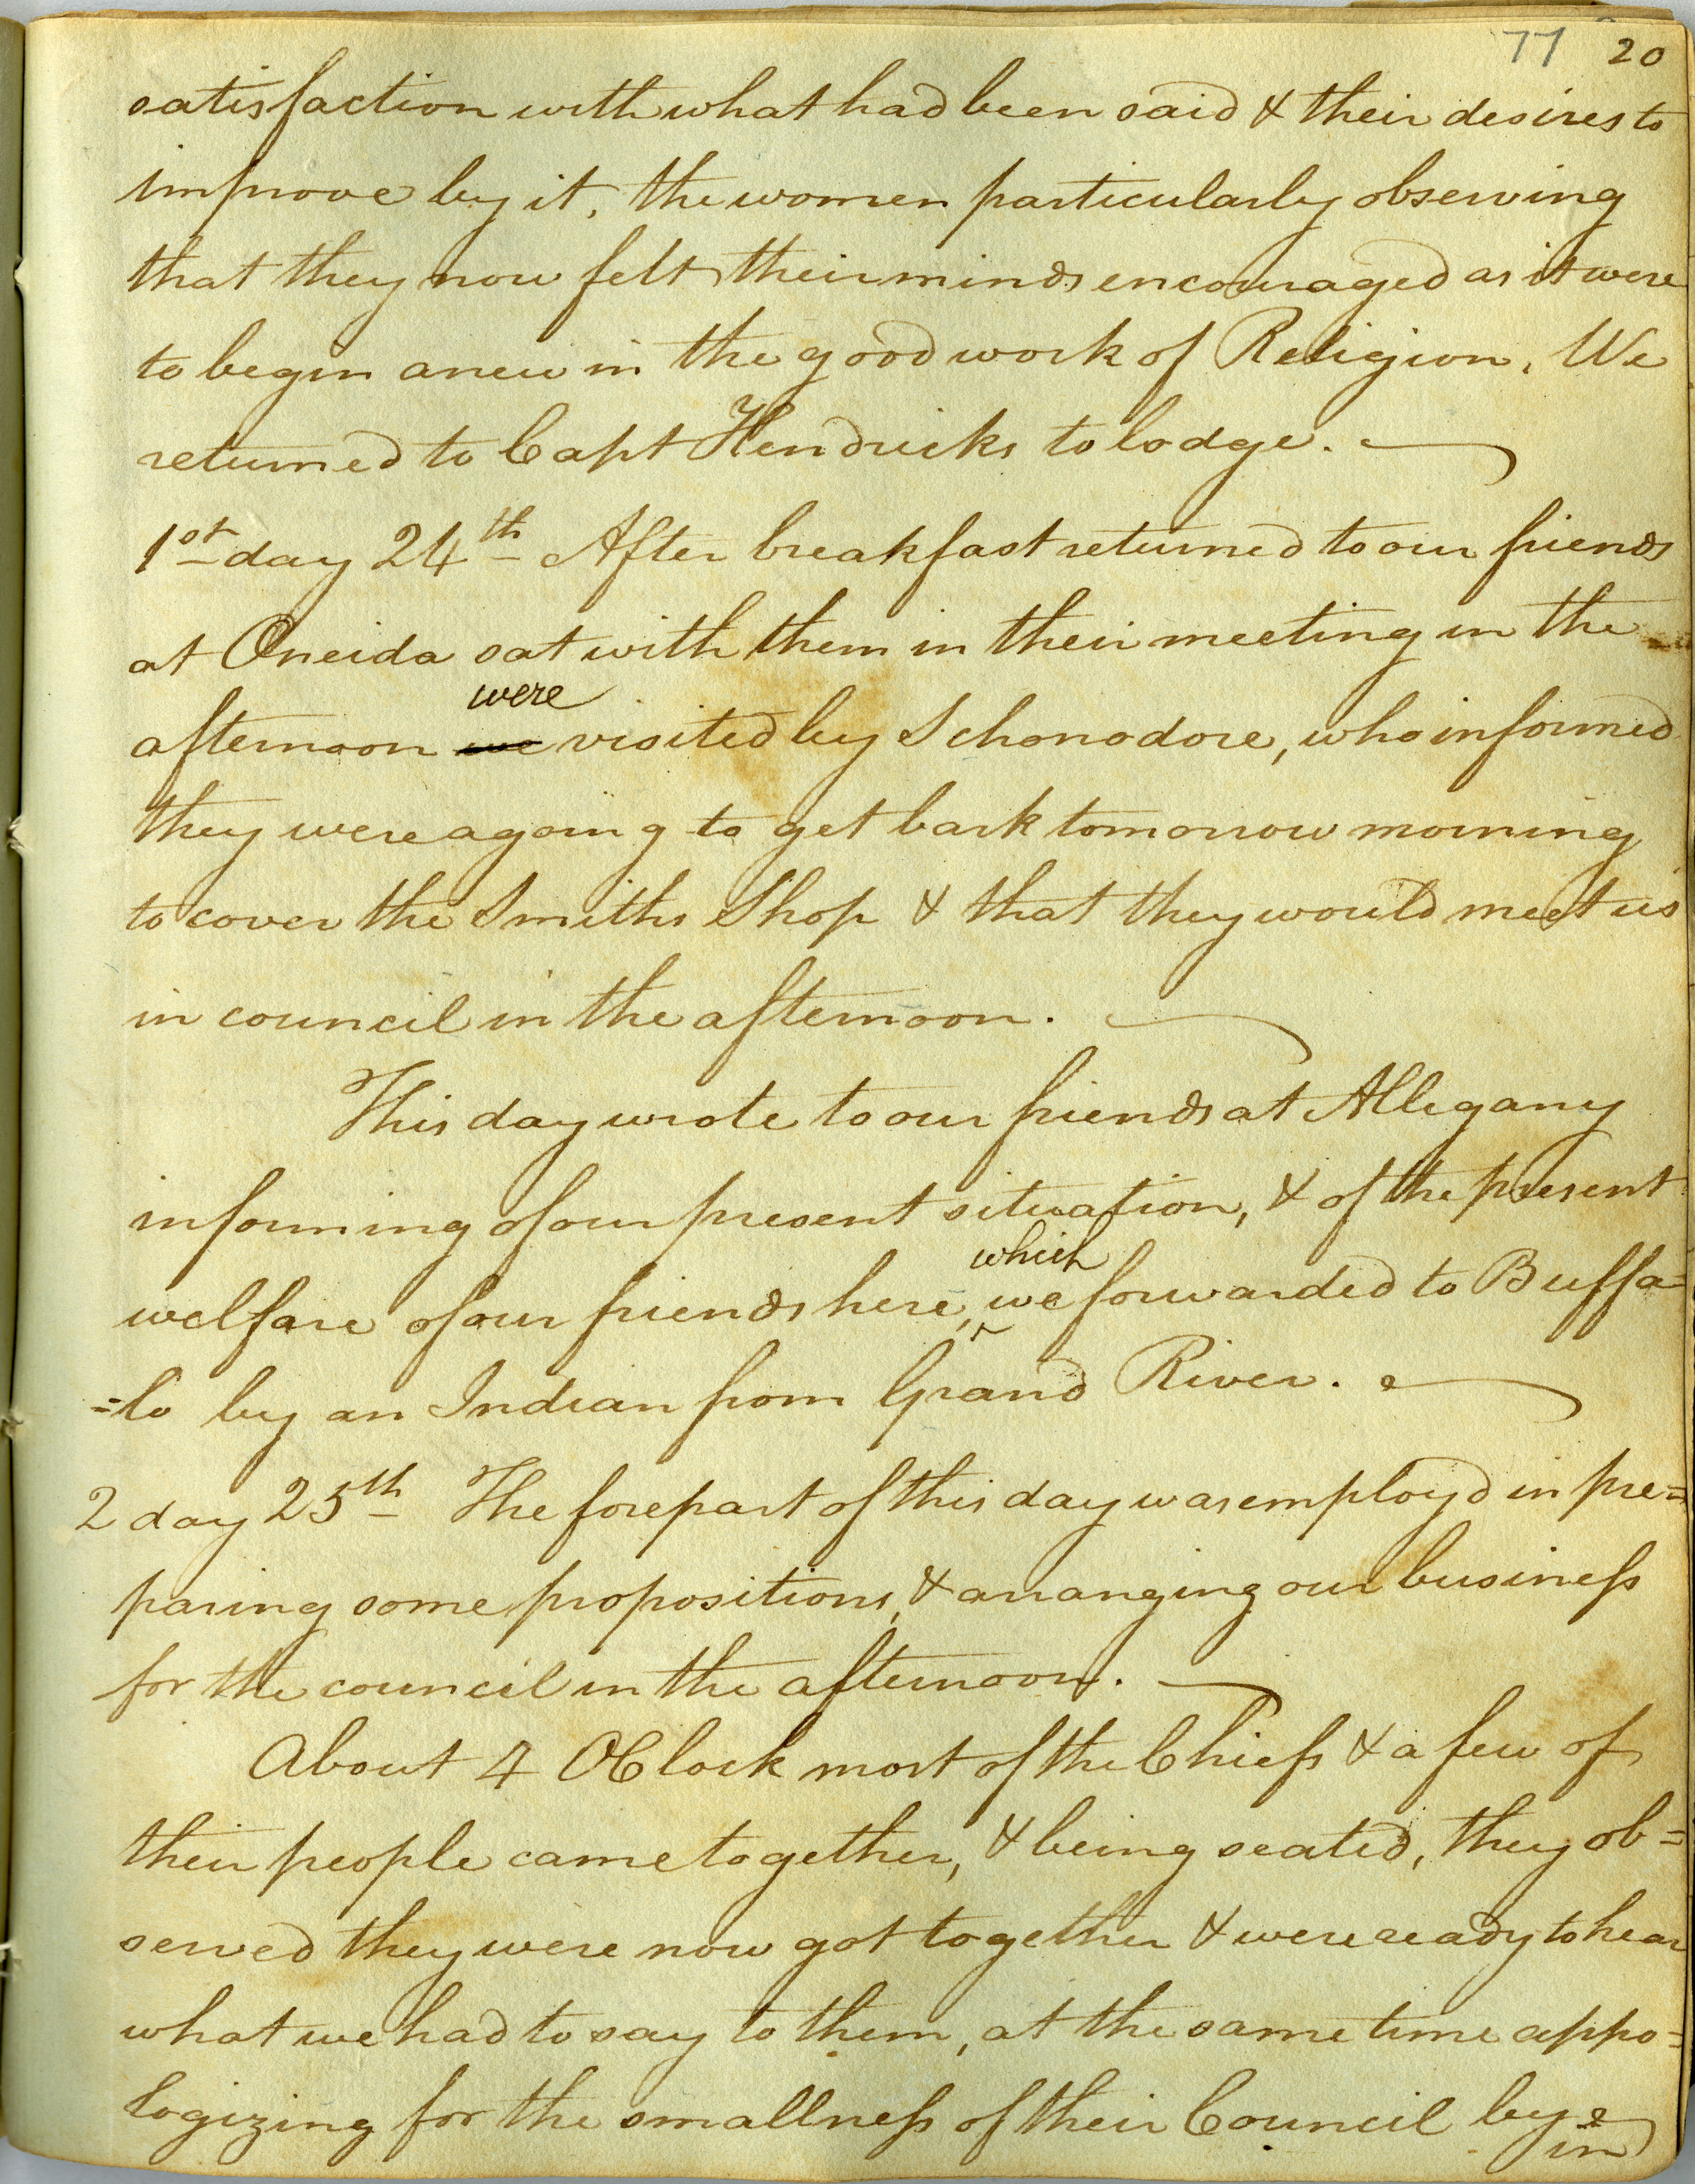 77 20
satisfaction with what had been said & their desires to
improve by it, the women particularly observing
that they now felt their minds encouraged as it were
to begin anew in the good work of Religion. We
returned to Capt Hendricks to lodge.
1st day 24th After breakfast returned to our friends
at Oneida sat with them in their meeting in the
were
afternoon we visited by Schonodore, who informed
they were agoing to get bark tomorrow morning
to cover the Smiths Shop & that they would meet us
in council in the afternoon.
This day wrote to our friends at Allegany
informing of our present situation, & of the present
which
welfare of our friends here, we forwarded to Buffa=
=lo by an Indian from Grand River.
2 day 25th The forepart of this day was employd in pre=
paring some propositions, & arranging our business
for the council in the afternoon.
About 4 OClock most of the Chiefs & a few of
their people came together, & being seated, they ob=
served they were now got together & were ready to hear
what we had to say to them, at the same time appo=
logizing for the smallness of their Council by
in